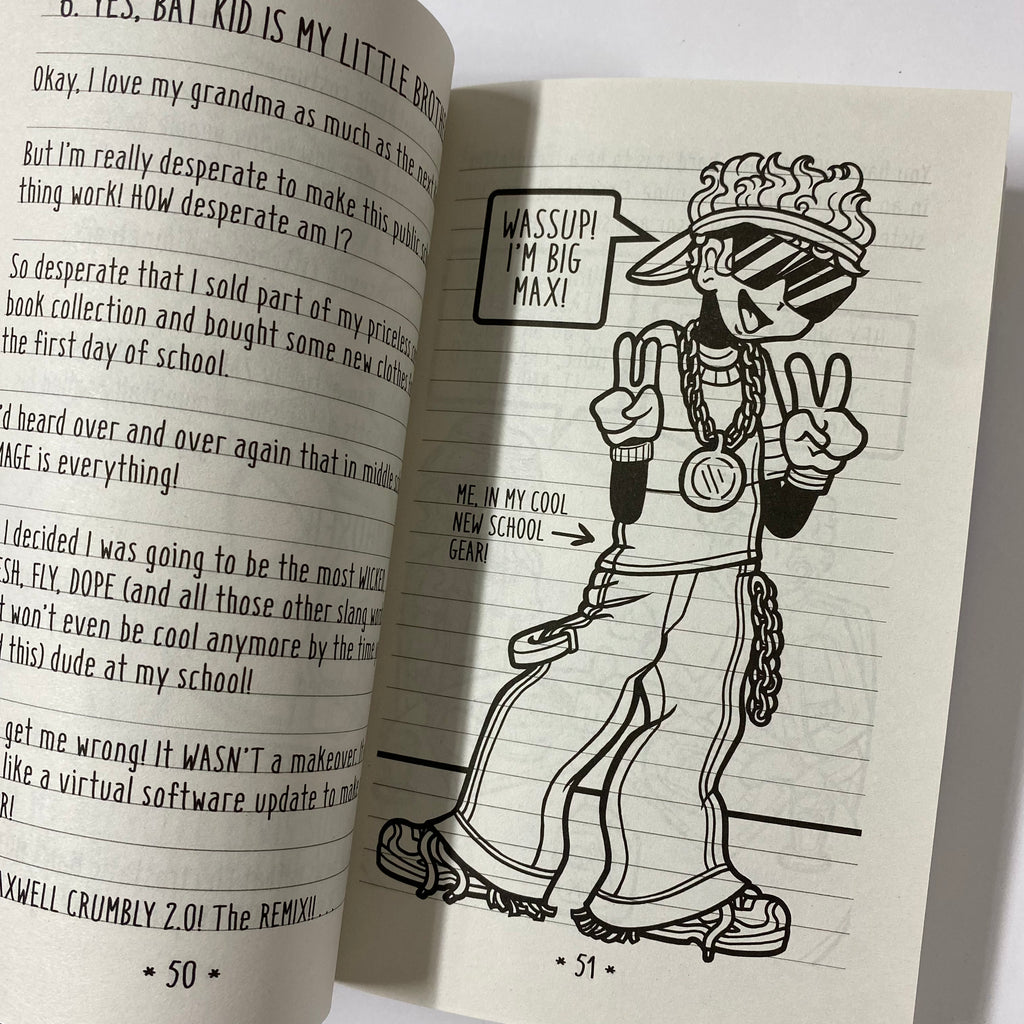 6. YES, BAT KID IS MY LITTLE BROTHER
Okay, I love my grandma as much as the next
But I'm really desperate to make this public
thing work! HOW desperate am I?
So desperate that I sold part of my priceless
book collection and bought some new clothes
the first day of school.
'd heard over and over again that in middle
MAGE is everything!
I decided I was going to be the most WICKED
ESH, FLY, DOPE (and all those other slang
t won't even be cool anymore by the time
this) dude at my school!
get me wrong! It WASN'T a makeover.
like a virtual software update to make
R!
AXWELL CRUMBLY 2.0! The REMIX!! ...
* 50 *
WASSUP!
I'M BIG
MAX!
ME, IN MY COOL
NEW SCHOOL
GEAR!
* 51 *